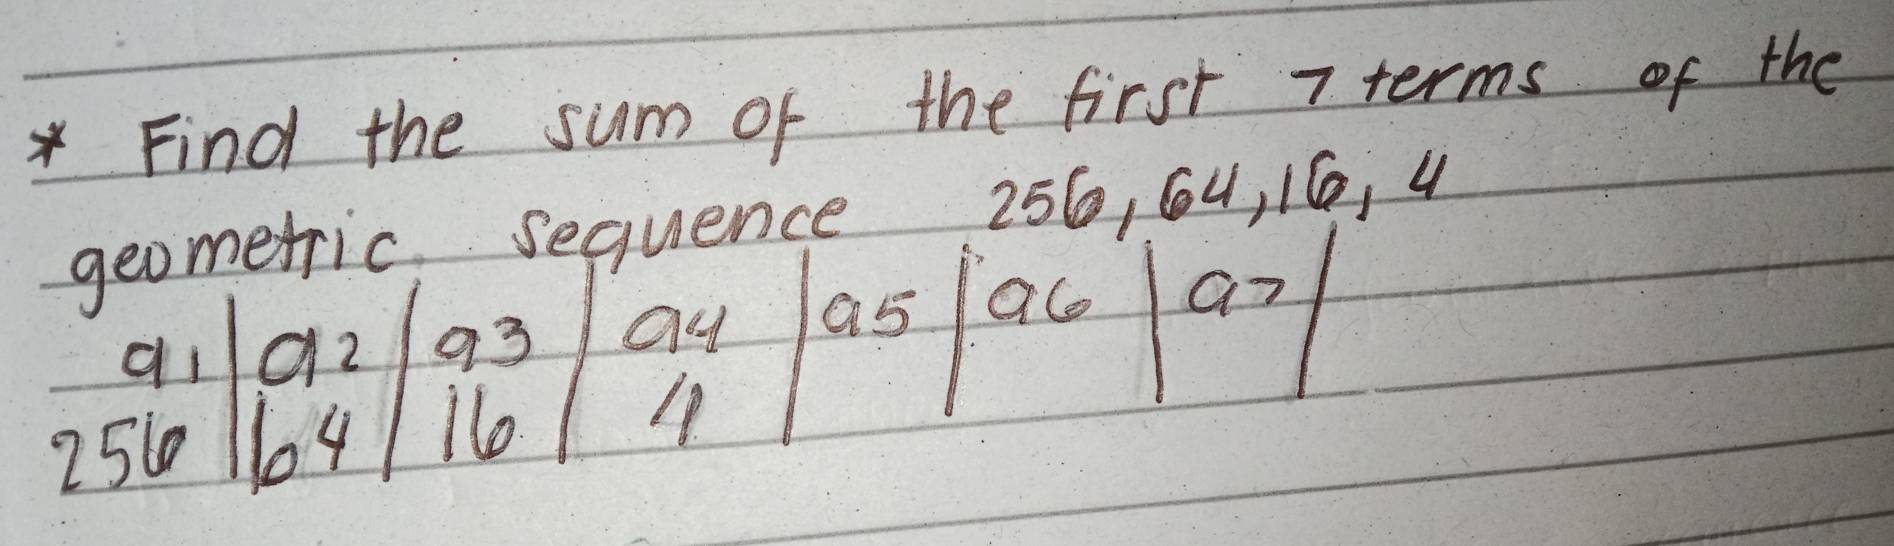 * Find the sum of the first 7 terms of the
geometric sequence 256, 64, 16, 4
a1 | a2 | a3 | a4 | a5 | a6 | a7 |
256 | 64 | 16 | 4